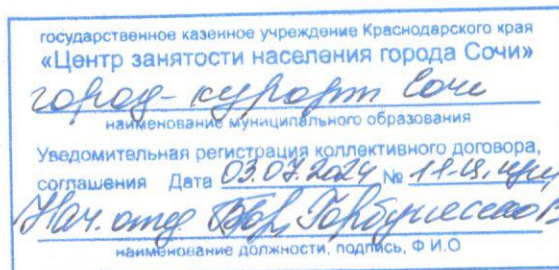 государственное казенное учреждение Краснодарского края
«Центр занятости населения города Сочи»
город-курорт Сочи
наименование муниципального образования
Уведомительная регистрация коллективного договора,
соглашения Дата 03.07.2024 №
Нач. отд.
наименование должности, подпись, Ф И.О